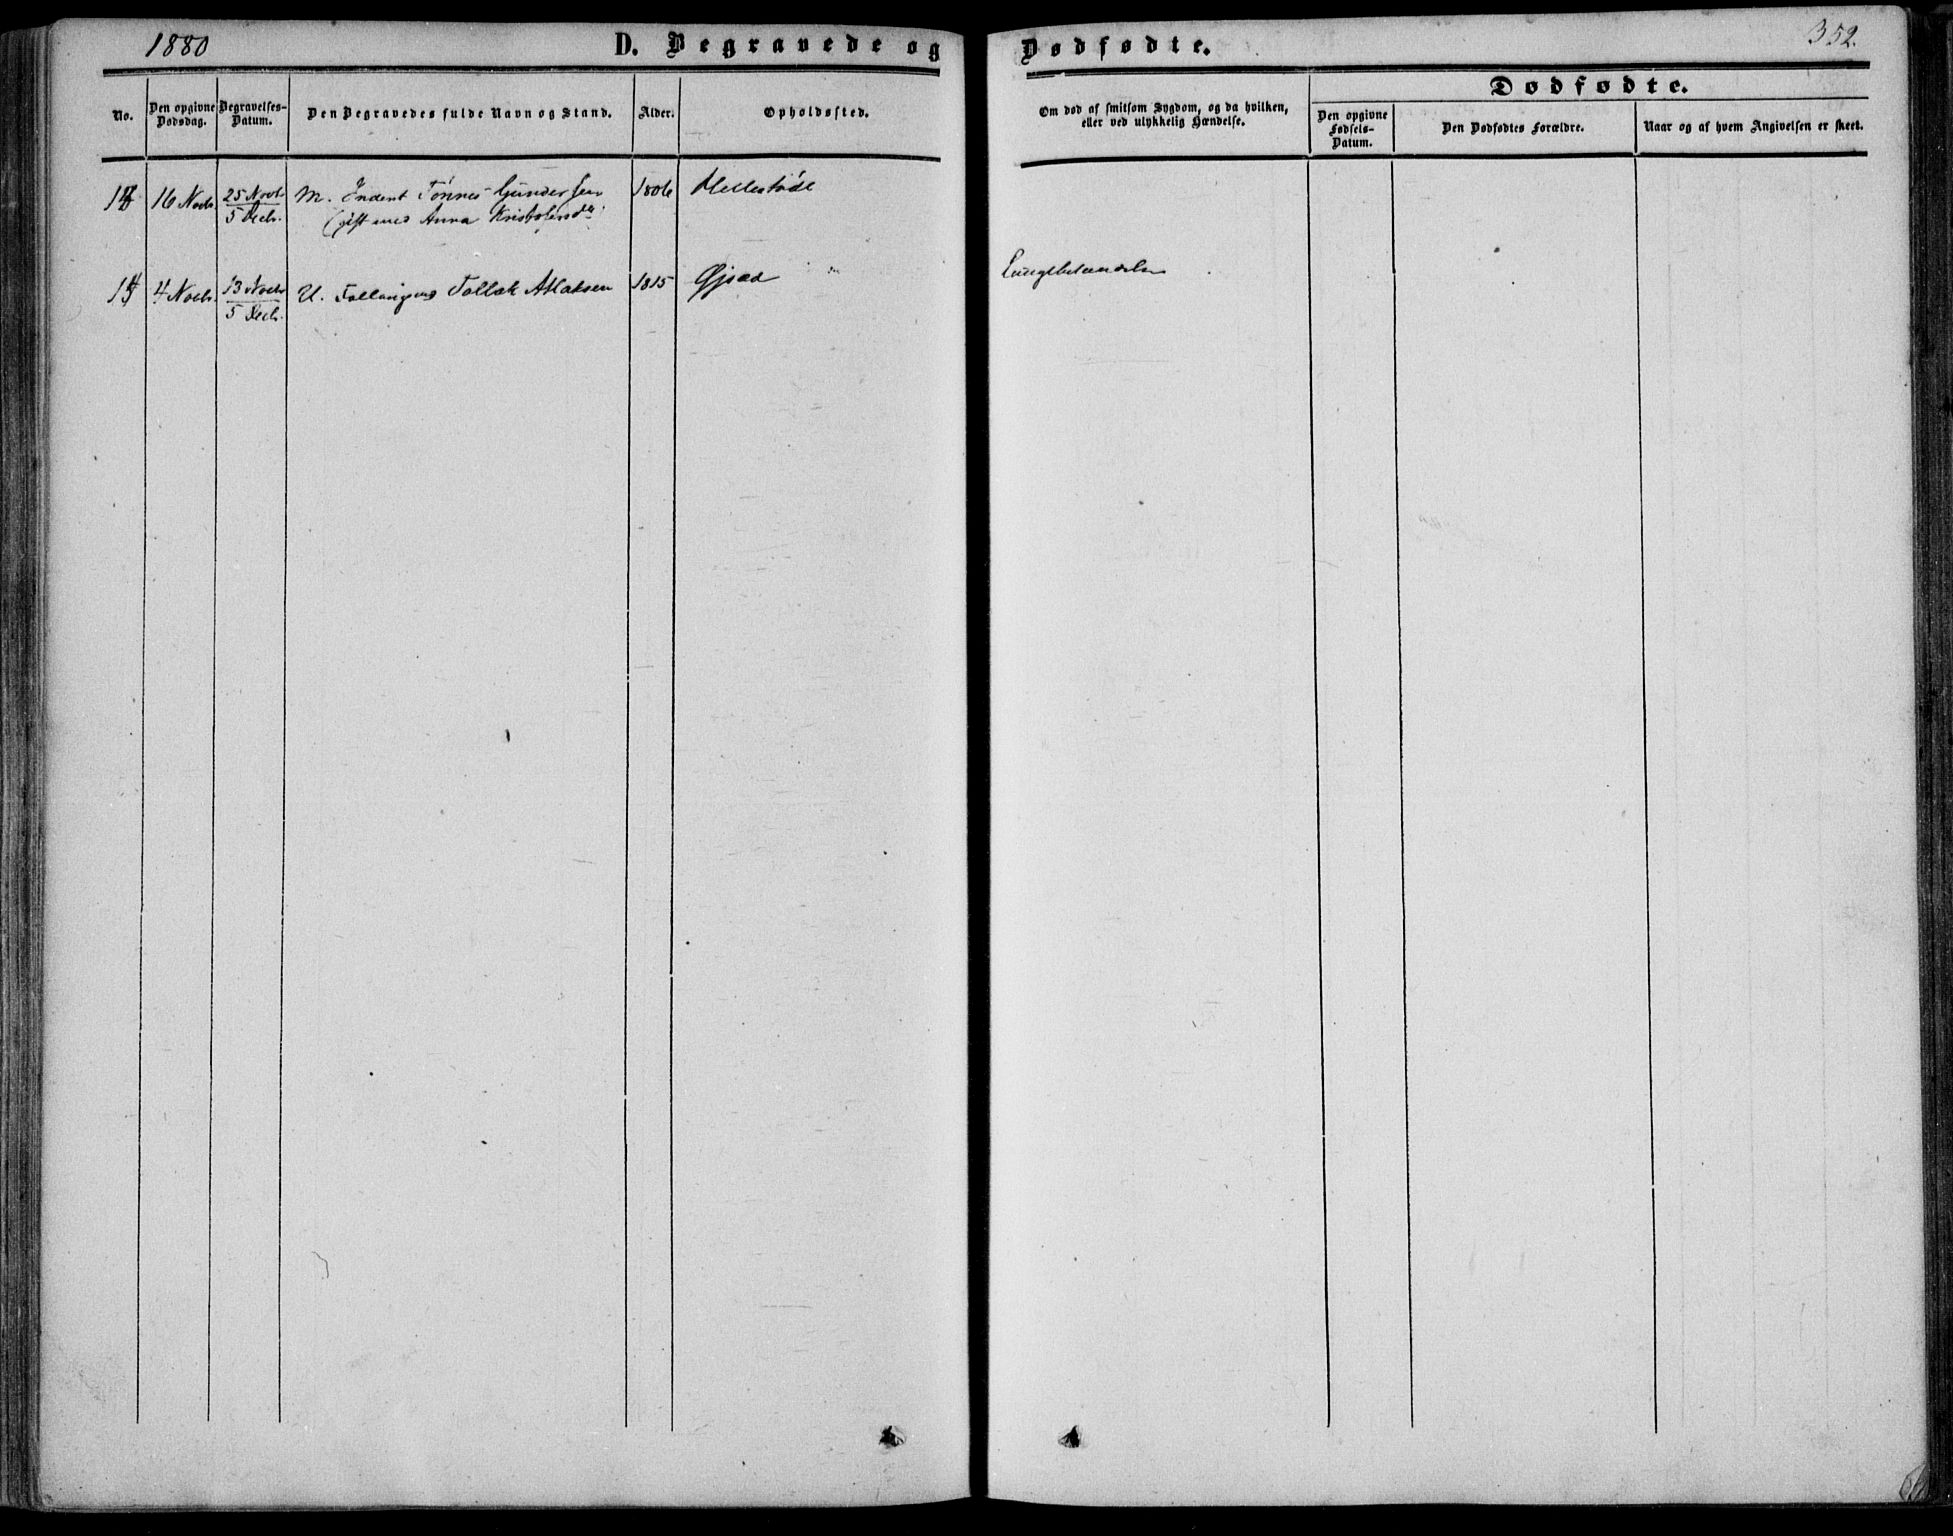 1880
D. Begravede og Dødfødte.
352.
No.
Den opgivne Dødsdag.
Begravelses-Datum.
Den Begravedes fulde Navn og Stand.
Alder.
Opholdssted.
Om død af smitsom Sygdom, og da hvilken,
eller ved ulykkelig Hændelse.
Dødfødte.
Den opgivne Fødsels-Datum.
Den Dødfødtes Forældre.
Naar og af hvem Angivelsen er skeet.
16 Novb. 25 Novb. M. Inderst Tønnes Gundersen 1806
5 Decb. (gift med Anna Kristofersdr.
4 Novb. 13 Novb. U. Tollak Aslaksen 1815 Gjsaa
5 Decb.
Lungebetændelse